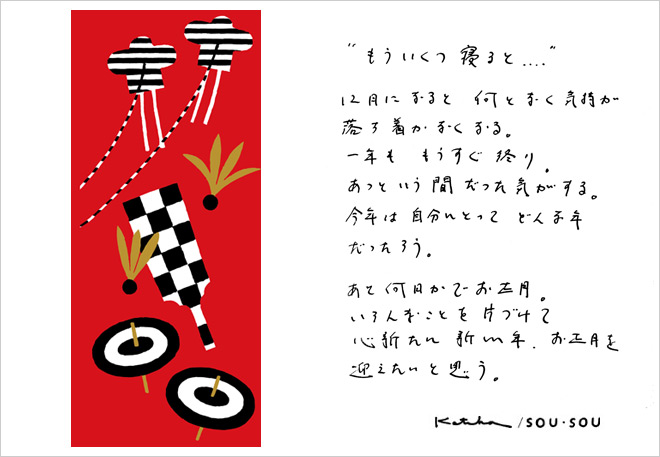 “もういくつ寝ると....”
12月になると 何となく気持が
落ち着かなくなる。
一年も もうすぐ終り。
あっという間だった気がする。
今年は自分にとって どんな年
だったろう。
あと何日かでお正月。
いろんなことを片づけて
心新たに 新しい年、お正月を
迎えたいと思う。
/SOU・SOU